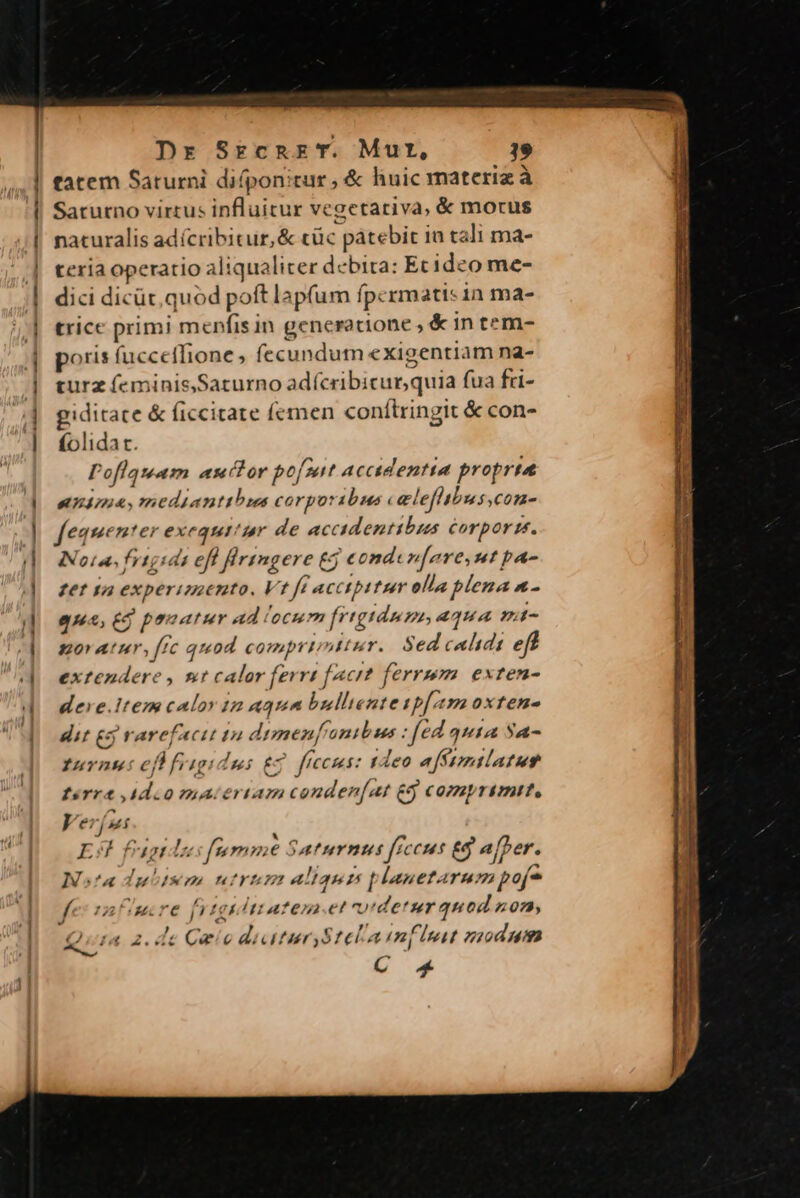 De Secret. Mul, 39
tatem Saturni diſponitur, & huic materiæ à
Saturno virtus influitur vegetativa, & motus
naturalis adſcribitur, & tūc patebit in tali ma-
teria operatio aliqualiter debita: Et ideo me-
dici dicūt, quòd poſt lapſum ſpermatis in ma-
trice primi menſis in generatione, & in tem-
poris ſucceſſione, ſecundum exigentiam na-
turæ ſeminis, Saturno adſcribitur, quia ſua fri-
giditate & ſiccitate ſemen conſtringit & con-
ſolidat.
Poſtquam auctor poſuit accidentia propria
animæ, mediantibus corporibus cæleſtibus, con-
ſequenter exequitur de accidentibus corporis.
Nota, frigidi eſt ſtringere & condenſare, ut pa-
tet in experimento. Vt ſi accipitur olla plena a-
quæ, & ponatur ad locum frigidum, aqua mi-
noratur, ſic quod comprimitur. Sed calidi eſt
extendere, ut calor ferri facit ferrum exten-
dere. Item calor in aqua bulliente ipſam exten-
dit & rarefacit in dimenſionibus: ſed quia Sa-
turnus eſt frigidus & ſiccus: ideo aſſimilatur
terræ, ideo materiam condenſat & comprimit.
Verſus.
Eſt frigidus ſumme Saturnus ſiccus & aſper.
Nota dubium utrum aliquis planetarum poſ-
ſet influere frigiditatem. et videtur quod non,
Quia 2. de Cælo dicitur, Stella influit modum
C 4